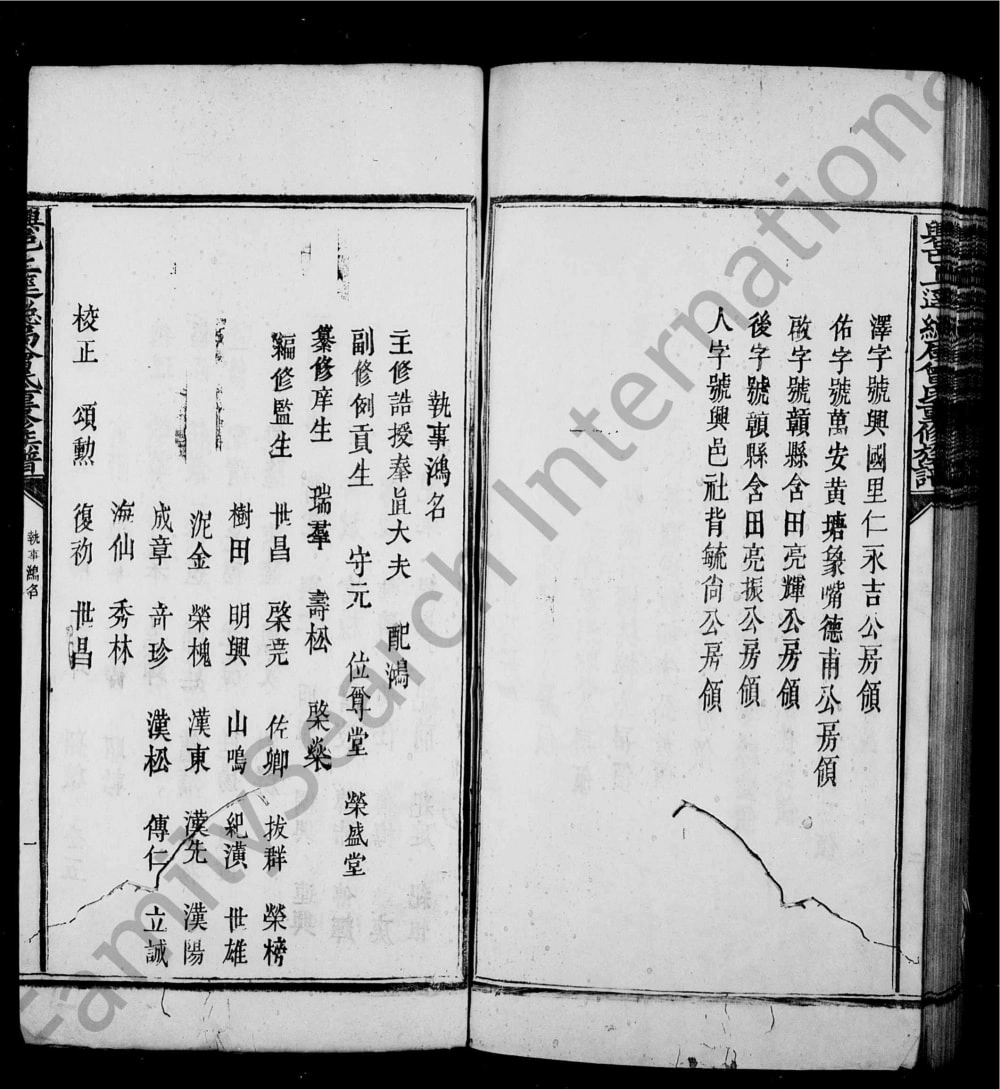 澤字號興國里仁永吉公房領
佑字號萬安黄塘象嘴德甫公房領
啟字號贑縣含田亮輝公房領
後字號贑縣含田亮振公房領
人字號興邑社背毓尙公房領
執事鴻名
主修誥授奉直大夫 配鴻
副修例貢生 守元 位尊堂 榮盛堂
纂修庠生 瑞羣 壽松 棨燊
編修監生 世昌 棨堯 佐卿 拔群 榮榜
樹田 明興 山鳴 紀漢 世雄
泥金 榮槐 漢東 漢先 漢陽
成章 奇珍 漢松 傳仁 立誠
海仙 秀林
校正 頌勲 復初 世昌
執事鴻名
一
FamilySearch International